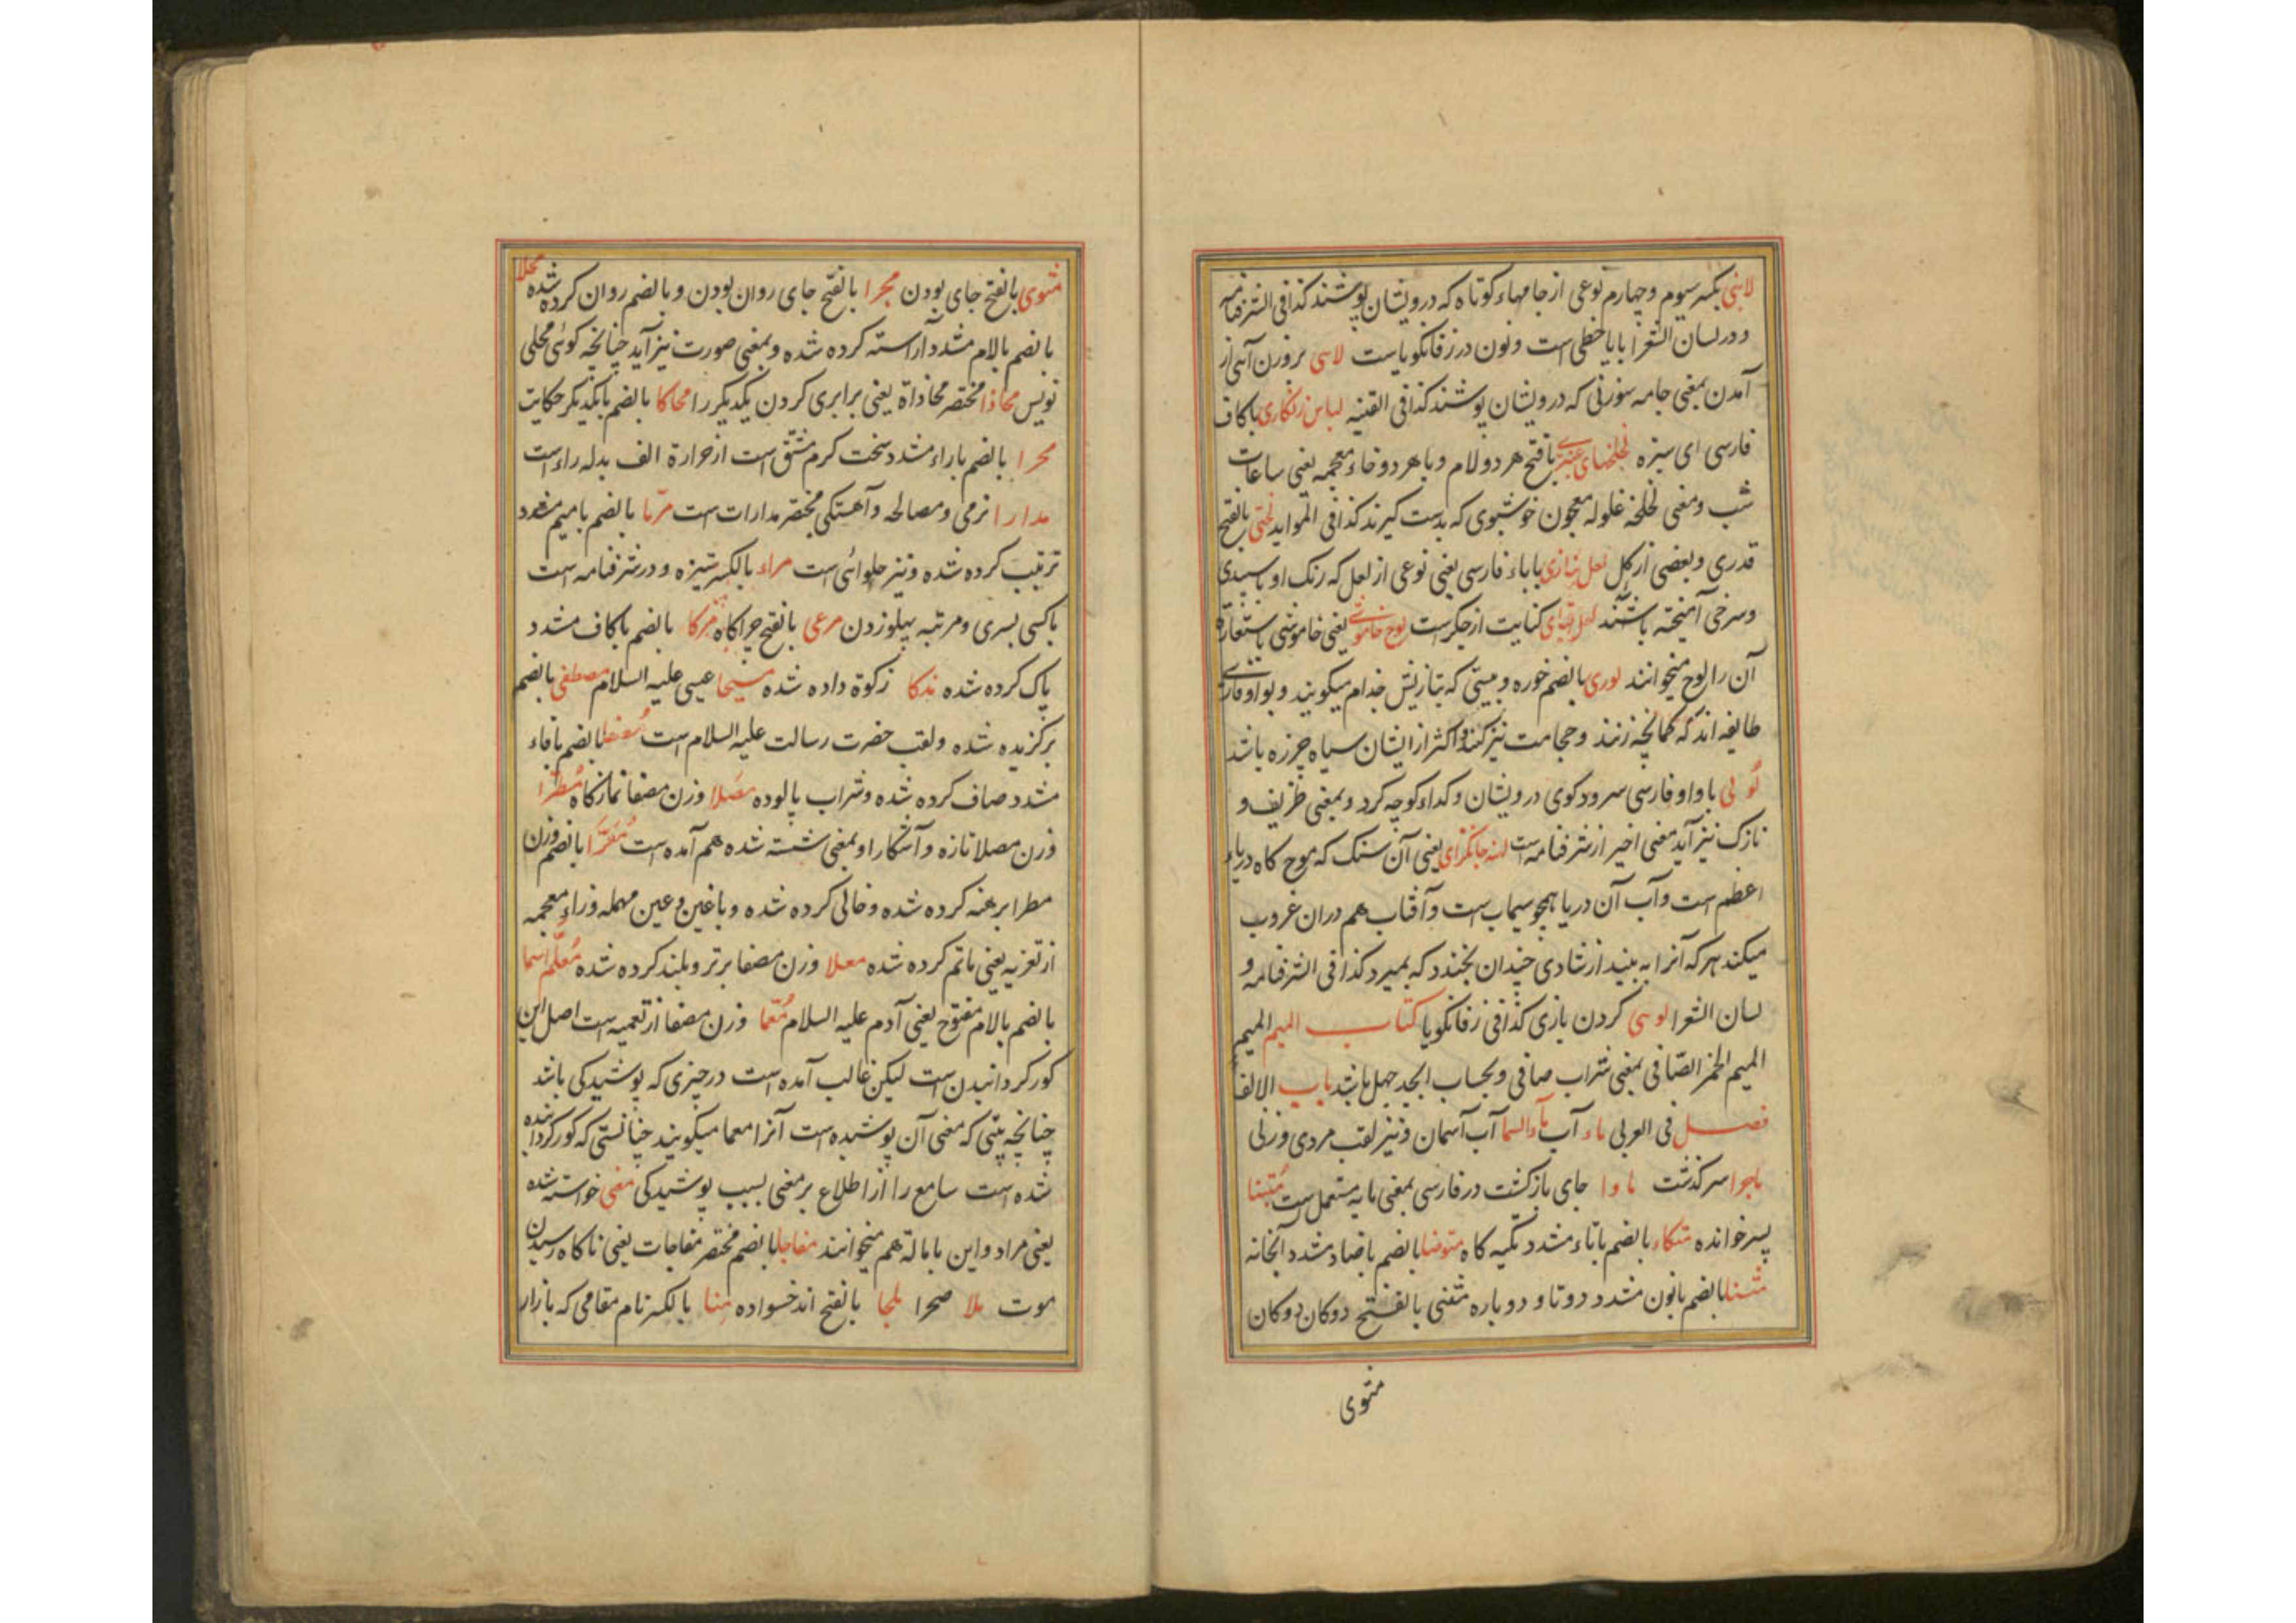 لابنی بکسر سیوم و چهارم نوعی از جامهاء کوتاه که درویشان پوشند کذا فی الشرفنامه
و در لسان الشعرا بایا خطی است و نون در زفانگویاست لاسی بر وزن آسی از
آمدن بمعنی جامه سوزنی که درویشان پوشند کذا فی القنیه لباس زنکاری باکاف
فارسی ای سبزه لخلخهای عنبری بافتح هر دو لام و باهر دو خاء معجمه یعنی ساعات
شب و معنی لخلخه غلوله معجون خوشبوی که بدست کیرند کذا فی الموايد لختی بالفتح
قدری و بعضی از کل لعل پیازی باباء فارسی یعنی نوعی از لعل که رنک او باسپیدی
و سرخی آمیخته باشند لعل قبای کنایت از جکرست لوح خاموشی یعنی خاموشی باستعارة
آن را لوح میخوانند لوری بالضم خوره و مبتی که بتازیش جذام میکویند و بواو فارسی
طایفه اند که کمانچه زنند و حجامت نیز کنند و اکثر ازایشان سیاه چرزه باشد
لولی باواو فارسی سرود کوی درویشان و کداء کوچه کرد و بمعنی ظریف و
نازک نیز آید معنی اخیر از شرفنامه است لنه جانکزای یعنی آن سنک که موج کاه دریاء
اعظم است و آب آن دریا همچو سیماب است و آفتاب هم دران غروب
میکند هر که آنرا به بیند از شادی چندان بخندد که بمیرد کذا فی الشرفنامه و
لسان الشعرا لوسی کردن بازی کذا فی زفانکویا کتاب المیم المیم
المیم الخمر الصافی بمعنی شراب صافی و بحساب ابجد چهل باشد باب الالف
فصل فی العربی ماء آب ماء السما آب آسمان و نیز لقب مردی و زنی
ماجرا سرکذشت ماوا جای بازکشت در فارسی بمعنی مایه مستعمل است متبنا
پسر خوانده متکاء بالضم باتاء مشدد تکیه کاه متوضا بالضم باضاد مشدد آبخانه
مثنا بالضم بانون مشدد دوتا و دوباره مثنی بالفتح دوکان دوکان
مثوی
مثوی بالفتح جای بودن مجرا بالفتح جای روان بودن و بالضم روان کرده شده محلا
بالضم بالام مشدد آراسته کرده شده و بمعنی صورت نیز آید چنانچه کوئی محلی
نویس محاذا مختصر محاذاة یعنی برابری کردن یکدیکر را محاکا بالضم بایکدیکر حکایت
محرا بالضم باراء مشدد سخت کرم مشتق است از حرارة الف بدله راء است
مدارا نرمی و مصالحه و آهستکی مختصر مدارات است مربا بالضم بامیم مشدد
ترتیب کرده شده و نیز حلوائی است مراء بالکسر ستیزه و در شرفنامه است
باکسی بسری و مرتبه پهلو زدن مرعی بالفتح چراکاه مزکا بالضم باکاف مشدد
پاک کرده شده ندکا زکوة داده شده مسیحا عیسی علیه السلام مصطفی بالضم
برکزیده شده و لقب حضرت رسالت علیه السلام است مصفا بالضم بافاء
مشدد صاف کرده شده و شراب پالوده مصلا وزن مصفا نمازکاه مطرا
وزن مصلا تازه و آشکارا و بمعنی شسته شده هم آمده است معرا بالضم وزن
مطرا برهنه کرده شده و خالی کرده شده و باغین و عین مهمله و زاء معجمه
از تعزیه یعنی ماتم کرده شده معلا وزن مصفا برتر و بلند کرده شده معلم اسما
بالضم بالام مفتوح یعنی آدم علیه السلام معما وزن مصفا از تعمیه است اصل این
کور کردانیدن است لیکن غالب آمده است در چیزی که پوشیدکی باشد
چنانچه بیتی که معنی آن پوشیده است آنرا معما میکویند چنانستی که کور کردانیده
شده است سامع را از اطلاع بر معنی بسبب پوشیدکی معنی خواسته شده
یعنی مراد و این باماله هم میخوانند مفاجا بالضم مختصر مفاجات یعنی ناکاه رسیدن
موت ملا صحرا ملجا بالفتح اندخسواده منا بالکسر نام مقامی که بازار